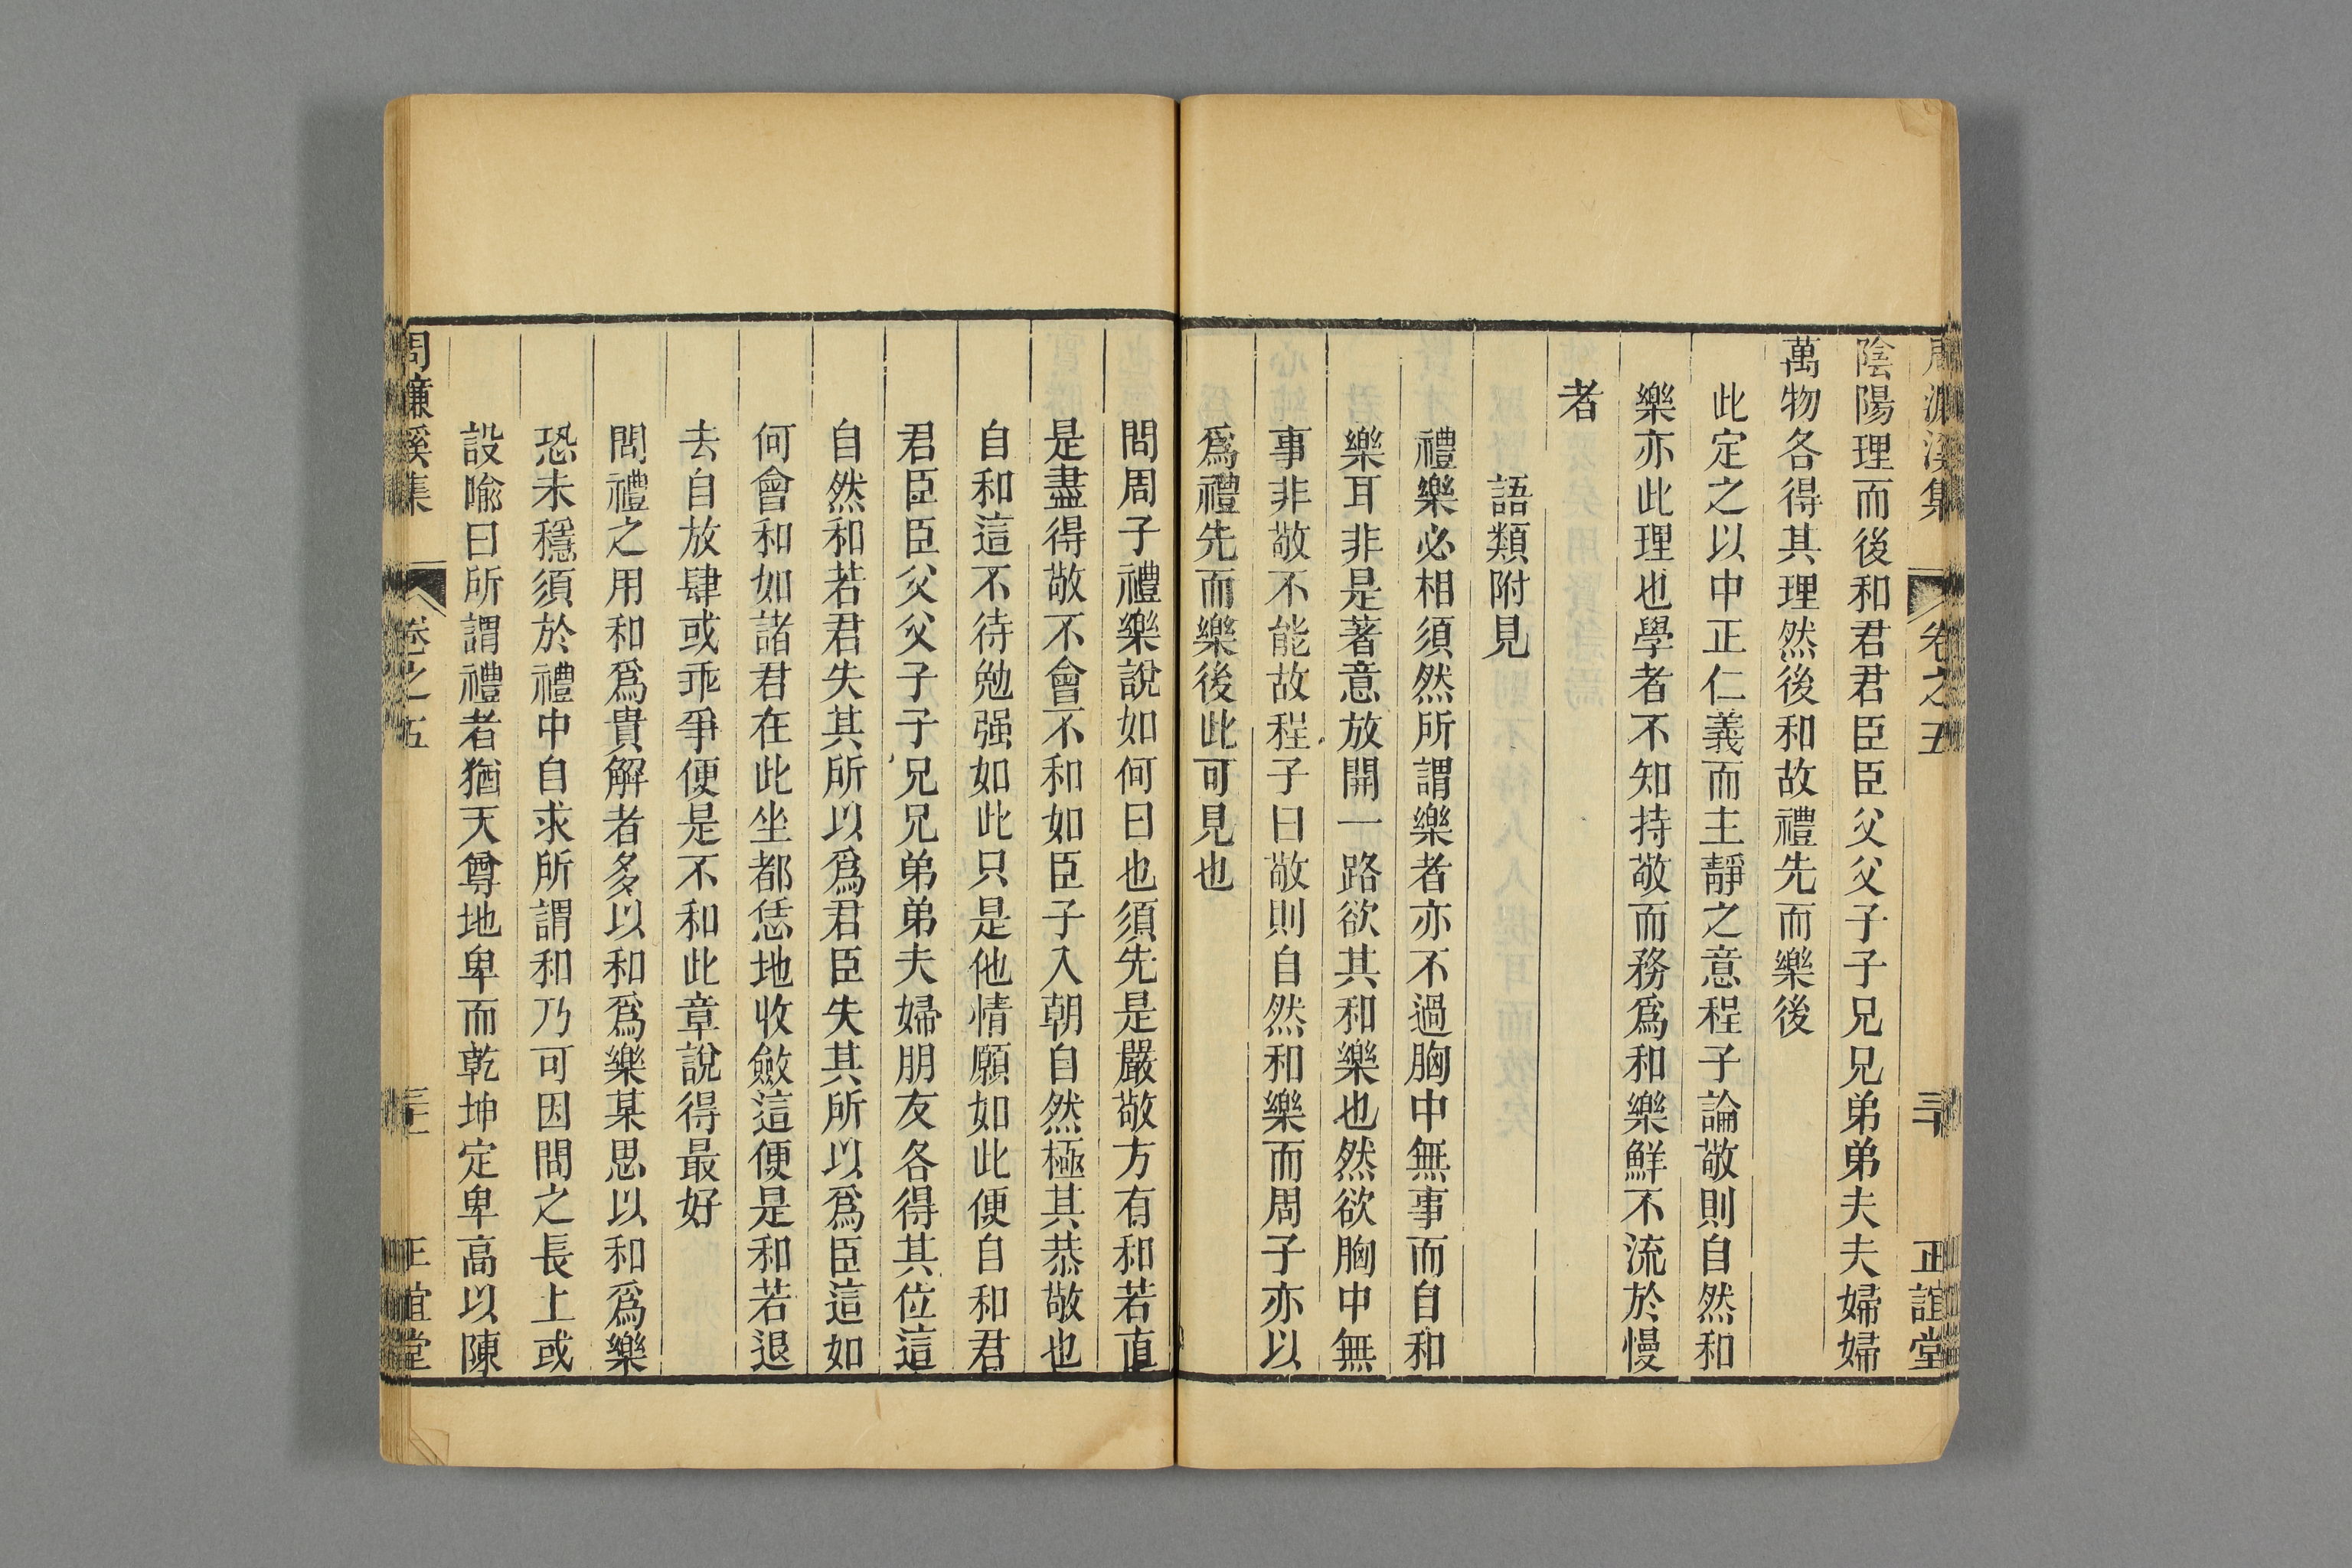 周濂溪集 卷之五 三十 正誼堂
陰陽理而後和君君臣臣父父子子兄兄弟弟夫夫婦婦
萬物各得其理然後和故禮先而樂後
此定之以中正仁義而主靜之意程子論敬則自然和
樂亦此理也學者不知持敬而務爲和樂鮮不流於慢
者
語類附見
禮樂必相須然所謂樂者亦不過胸中無事而自和
樂耳非是著意放開一路欲其和樂也然欲胸中無
事非敬不能故程子曰敬則自然和樂而周子亦以
爲禮先而樂後此可見也
問周子禮樂說如何曰也須先是嚴敬方有和若直
是盡得敬不會不和如臣子入朝自然極其恭敬也
自和這不待勉强如此只是他情願如此便自和君
君臣臣父父子子兄兄弟弟夫婦朋友各得其位這
自然和若君失其所以爲君臣失其所以爲臣這如
何會和如諸君在此坐都恁地收斂這便是和若退
去自放肆或乖爭便是不和此章說得最好
問禮之用和爲貴解者多以和爲樂某思以和爲樂
恐未穩須於禮中自求所謂和乃可因問之長上或
設喻曰所謂禮者猶天尊地卑而乾坤定卑高以陳
周濂溪集 卷之五 正誼堂